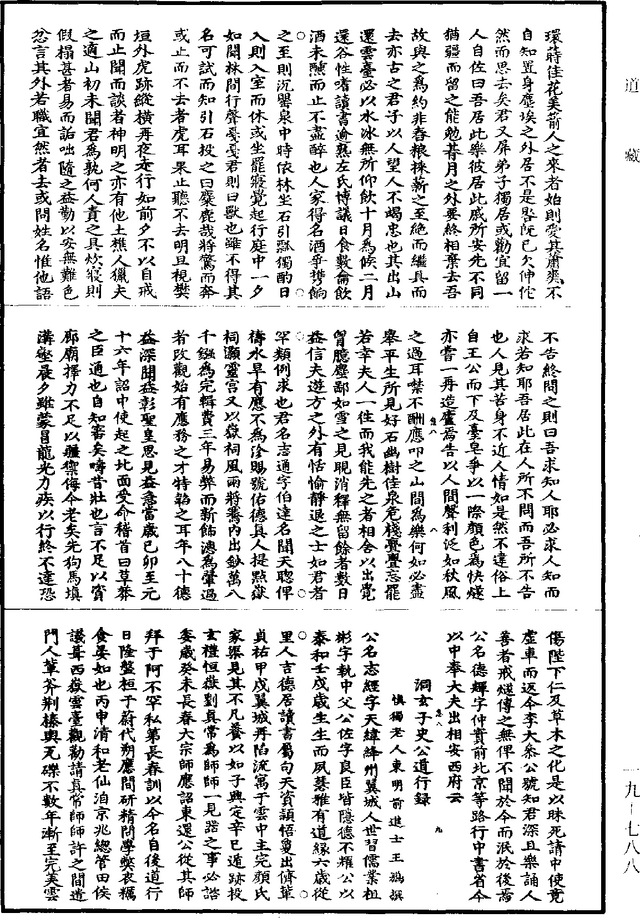 道藏
環蒔佳花美箭人之來者始則愛其蕭爽不
自知置身塵埃之外居不是晷旣已欠伸佗
然而思去矣君又屏弟子獨居或勸宜留一
人自佐曰吾居此樂彼居此慼所安先不同
猶疆而留之能勉朞月之外要終相棄去吾
故與之爲約非舂粮捒薪之至絶而繼具而
去亦古之君子以人望人不竭忠也其出山
還雲臺必以水冰無所仰飲十月爲候二月
還谷性嗜讀書逾熟左氏博議日食數龠飲
酒未醺而止不盡醉也人家得名酒爭攜餉
之至則沉甖泉中時依林坐石引瓢獨酌日
入則入室而休或坐罷寢覺起行庭中一夕
如聞林間行聲戞戞君則曰獸也雖不得其
名可試而知引石投之曰麋鹿哉將驚而奔
或止而不去者虎耳果止聽不去明旦視樊
垣外虎跡縱橫再夜走行如前夕不以自戒
而止聞而談者神明之亦有他土樵人獵夫
之適山初未聞君爲孰何人責之具炊寢則
假榻甚者易而詬咄隨之益勤以安無難色
忿言其外若職宜然者去或問姓名惟他語
不告終問之則曰吾求知人耶必求人知而
求若知耶吾居此在人所不問而吾所不告
也人見其苦身不近人情如是然不違俗上
自王公而下及臺皁爭以一際顏色爲快燧
亦嘗一再造廬焉告以人間聲利泛如秋風
之過耳㗲不酬應叩之山間爲樂何如必盡
舉平生所見好石幽樹佳泉危棧亹亹忘罷
若幸夫人一往而我能先之者相舍以出覺
胷臆塵鄙如雪之見晛消釋無留餘者數日
益信夫遊方之外有恬愉靜退之士如君者
罕類例求也君名志通字伯達名聞天聰俾
禱水旱有應不爲沴賜號佑德眞人提㸃嶽
祠灝靈宮又以嶽祠風雨將騫内出鈔萬八
千鏹爲完輯費三年易弊而新飾漶爲肇過
者改觀始有應務之才特韜之耳年八十德
益深聞益彰聖皇思見益急當歲己卯至元
十六年詔中使起之北面受命稽首曰草莽
之臣通也自知審矣疇昔壯也言不足以賓
廊廟擇力不足以疆禦侮今老矣先狗馬填
溝壑晨夕雖蒙昌龍光力疾以行終不達恐
傷陛下仁及草木之化是以昧死請中使竟
虛車而返今李大叅公號知君深且樂誦人
善者戒燧傳之無俾不聞於今而泯於後焉
公名德輝字仲實前北京等路行中書省今
以中奉大夫出相安西府云
洞玄子史公道行録
慎獨老人東明前進士王鶚撰
公名志經字天緯絳州翼城人世習儒業祖
彬字執中父公佐字良臣皆隱德不耀公以
泰和壬戌歲生生而夙慧雅有道緣六歲從
里人吉德居讀書屬句天資頴悟夐出儕輩
貞祐甲戌翼城再陷流寓于雲中主完顏氏
家渠見其不凡養以如子興定辛巳遁跡投
玄禮恒嶽劉真常爲師師一見器之事必諮
委歲癸未長春大宗師應詔東還公從其師
拜于阿不罕私第長春訓以今名自後道行
日隆盤桓于蔚代朔應間研精問學槩衣糲
食晏如也丙申清和老仙洎京兆總管田侯
議葺西嶽雲臺觀勤請眞常師師許之間遣
門人輩斧荆榛輿瓦礫不數年漸至完美雲
一九-七八八